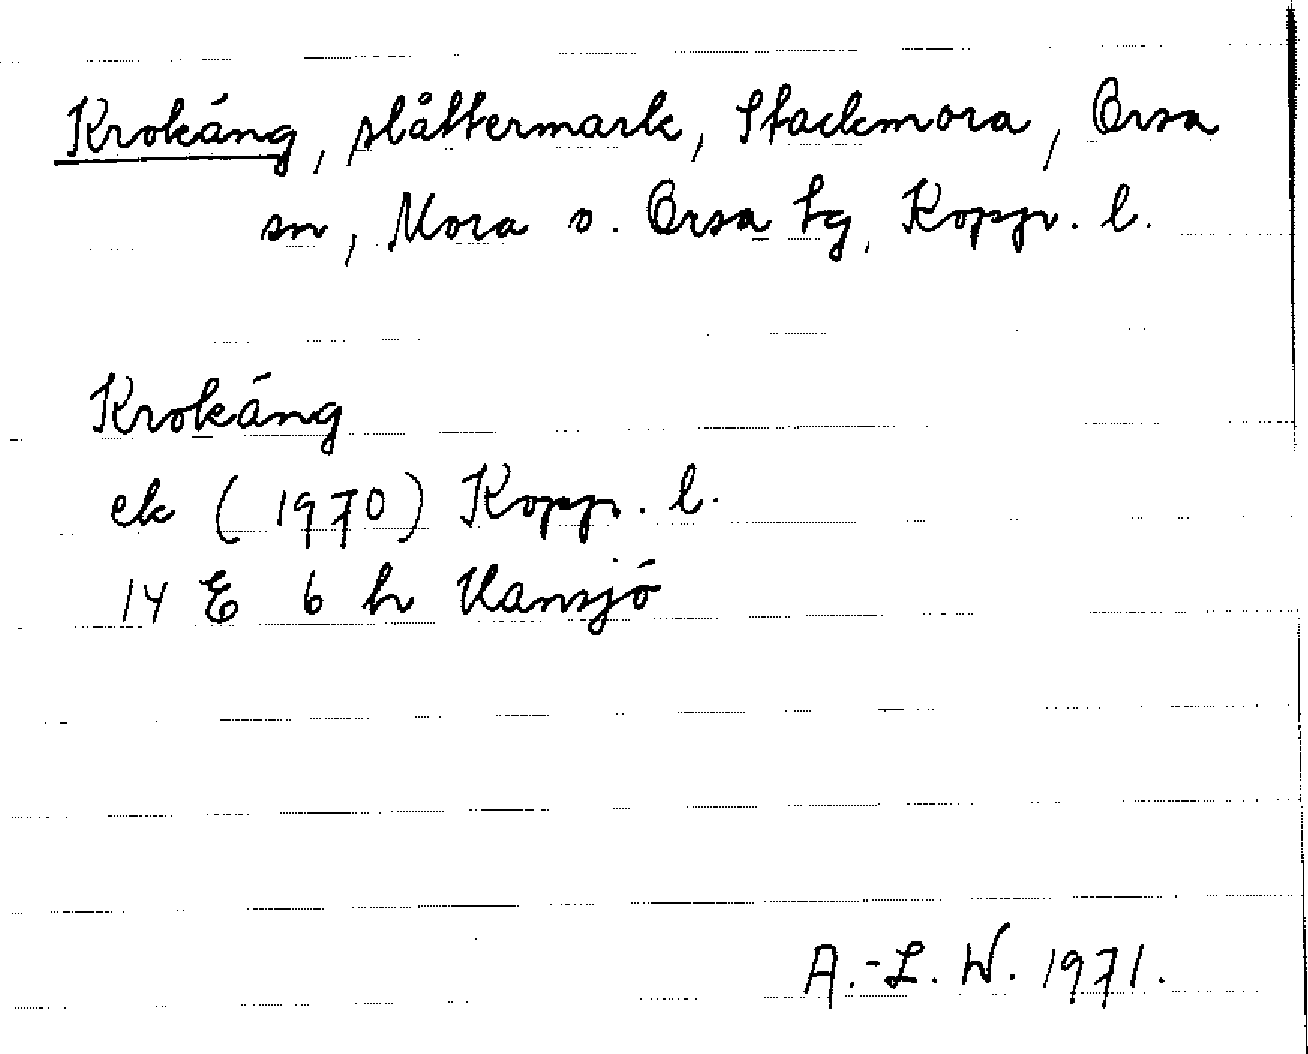 Krokäng, slåttermark, Stackmora, Orsa
sn, Mora o. Orsa tg, Kopp. l.
Krokäng
ek (1970) Kopp. l.
14 E 6 h Hansjö
A.-L. W. 1971.